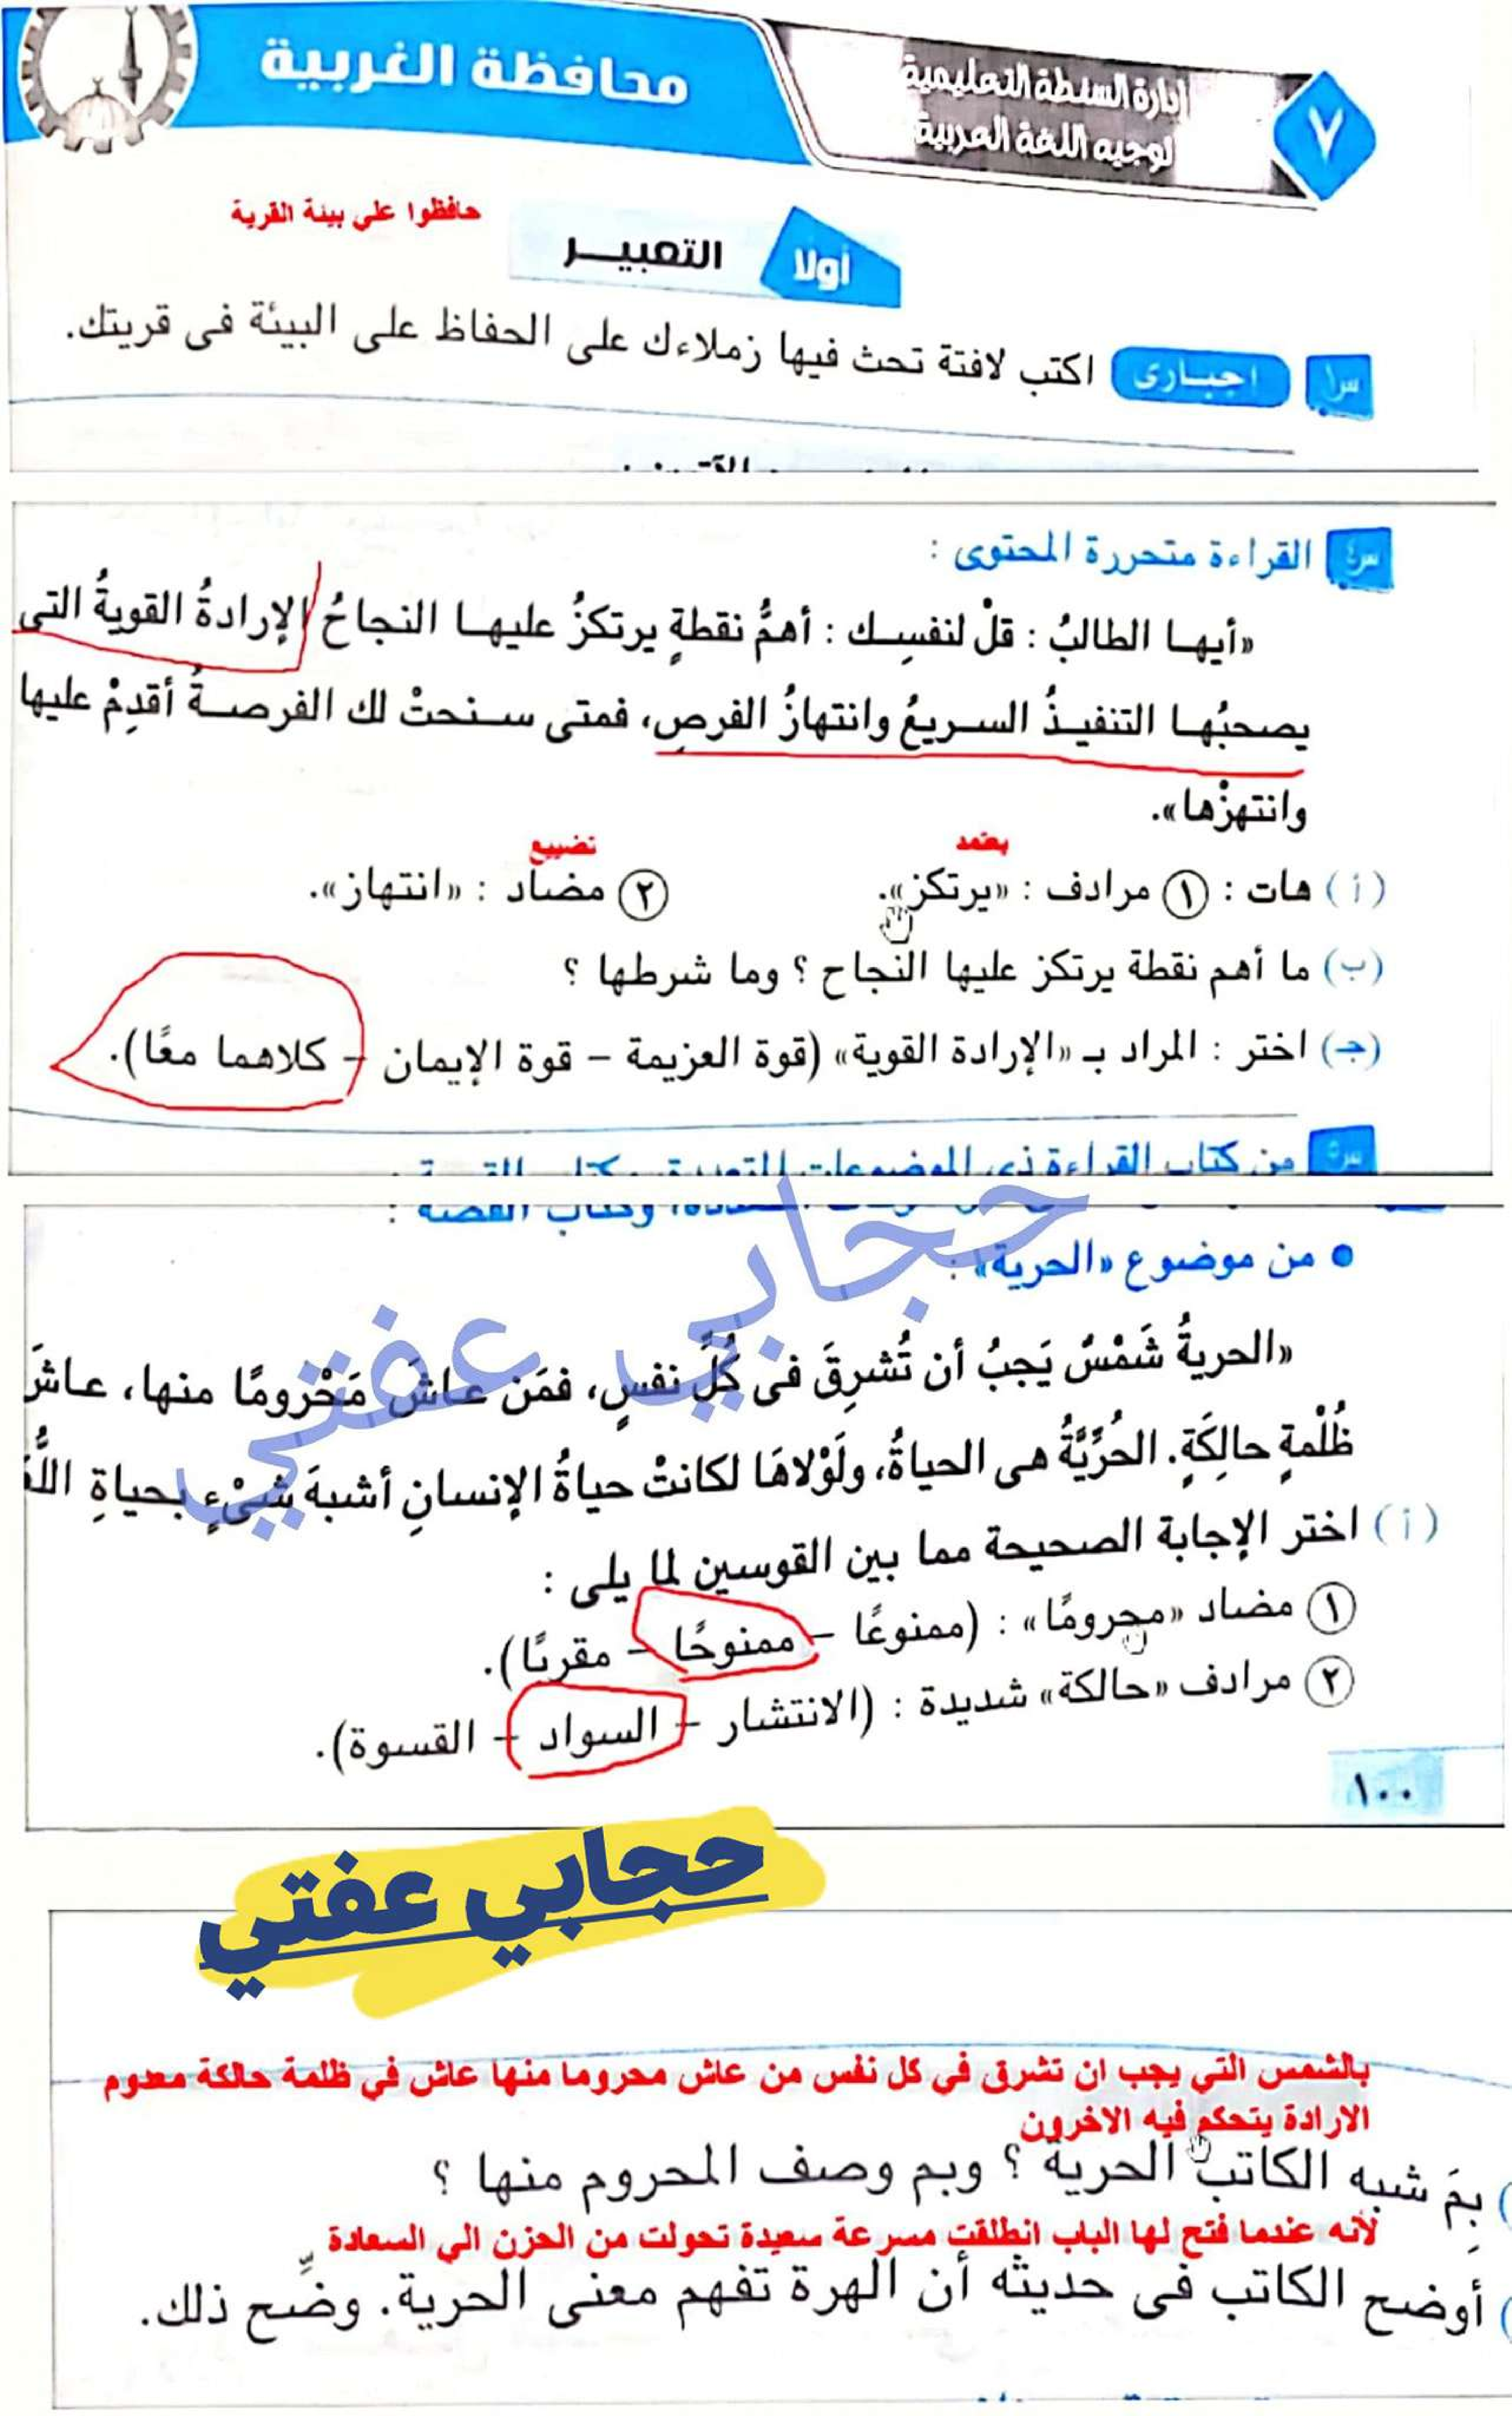 محافظة الغربية
إدارة السنطة التعليمية
توجيه اللغة العربية
٧
حافظوا على بيئة القرية
أولا التعبيـــر
س١ اجبـارى اكتب لافتة تحث فيها زملاءك على الحفاظ على البيئة فى قريتك.
س٤ القراءة متحررة المحتوى :
«أيهـا الطالبُ : قلْ لنفسِـك : أهمُّ نقطةٍ يرتكزُ عليهـا النجاحُ الإرادةُ القويةُ التى
يصحبُهـا التنفيـذُ السـريعُ وانتهازُ الفرصِ، فمتى سـنحتْ لك الفرصـةُ أقدِمْ عليها
وانتهزْها».
يعتمد
تضييع
(أ) هات : ١ مرادف : «يرتكز». ٢ مضاد : «انتهاز».
(ب) ما أهم نقطة يرتكز عليها النجاح ؟ وما شرطها ؟
(جـ) اختر : المراد بـ «الإرادة القوية» (قوة العزيمة – قوة الإيمان – كلاهما معًا).
س٥ من كتاب القراءة ذى الموضوعات المتعددة، وكتاب القصة :
حجابي عفتي
• من موضوع «الحرية» :
«الحريةُ شَمْسٌ يَجبُ أن تُشرِقَ فى كُلِّ نفسٍ، فمَن عـاشَ مَحْرومًا منها، عـاشَ
ظُلْمةٍ حالِكَةٍ. الحُرِّيَّةُ هى الحياةُ، ولَوْلاهَا لكانتْ حياةُ الإنسانِ أشبهَ شىْءٍ بحياةِ
(أ) اختر الإجابة الصحيحة مما بين القوسين لما يلى :
١ مضاد «محرومًا» : (ممنوعًا – ممنوحًا – مقربًا).
٢ مرادف «حالكة» شديدة : (الانتشار – السواد – القسوة).
١٠٠
حجابي عفتي
بالشمس التي يجب ان تشرق في كل نفس من عاش محروما منها عاش في ظلمة حالكة معدوم
الارادة يتحكم فيه الاخرون
بِمَ شبه الكاتب الحرية ؟ وبم وصف المحروم منها ؟
لأنه عندما فتح لها الباب انطلقت مسرعة سعيدة تحولت من الحزن الي السعادة
أوضح الكاتب فى حديثه أن الهرة تفهم معنى الحرية. وضِّح ذلك.